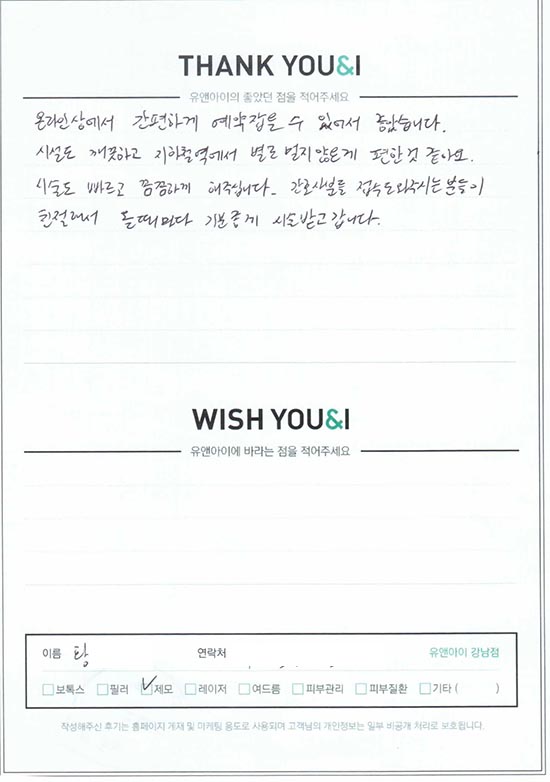 THANK YOU&I
유앤아이의 좋았던 점을 적어주세요
온라인상에서 간편하게 예약잡을 수 있어서 좋았습니다.
시설도 깨끗하고 지하철역에서 별로 멀지않은게 편한것 같아요.
시술도 빠르고 꼼꼼하게 해주십니다. 간호사분들 접수도와주시는분들이
친절해서 올때마다 기분좋게 시술받고갑니다.
WISH YOU&I
유앤아이에 바라는 점을 적어주세요
이름 탕 연락처 유앤아이 강남점
보톡스 필러 제모 레이저 여드름 피부관리 피부질환 기타 ( )
작성해주신 후기는 홈페이지 게재 및 마케팅 용도로 사용되며 고객님의 개인정보는 일부 비공개 처리로 보호됩니다.